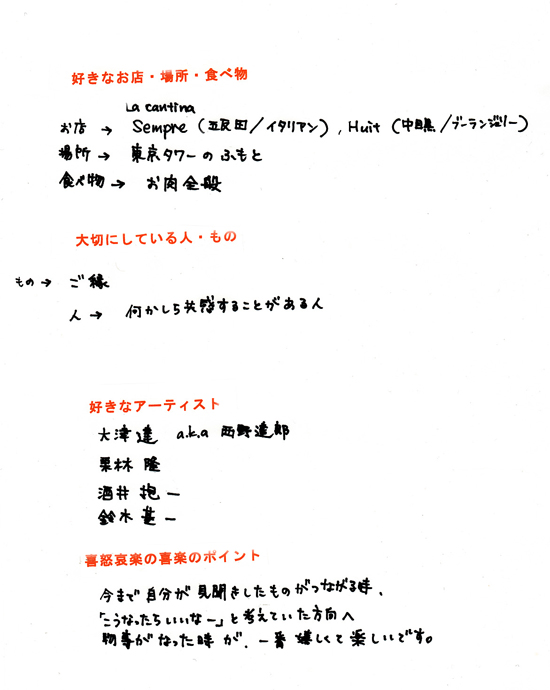 好きなお店・場所・食べ物
La cantina
お店 → Sempre (五反田/イタリアン), Huit (中目黒/ブーランジェリー)
場所 → 東京タワーのふもと
食べ物 → お肉全般
大切にしている人・もの
もの → ご縁
人 → 何かしら共感することがある人
好きなアーティスト
大津達 a.k.a 西野達郎
栗林 隆
酒井 抱一
鈴木 基一
喜怒哀楽の喜楽のポイント
今まで自分が見聞きしたものがつながる時、
「こうなったらいいなー」と考えていた方向へ
物事がなった時が、一番嬉しくて楽しいです。